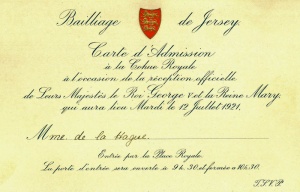 Bailliage de Jersey
Carte d'Admission
à la Cohue Royale
à l'occasion de la réception officielle
de Leurs Majestés le Roi George V et la Reine Mary,
qui aura lieu Mardi le 12 Juillet 1921.
Mme de la Hague
Entrée par la Place Royale.
La porte d'entrée sera ouverte à 9 h. 30 et fermée à 10 h. 30.
T.S.V.P.